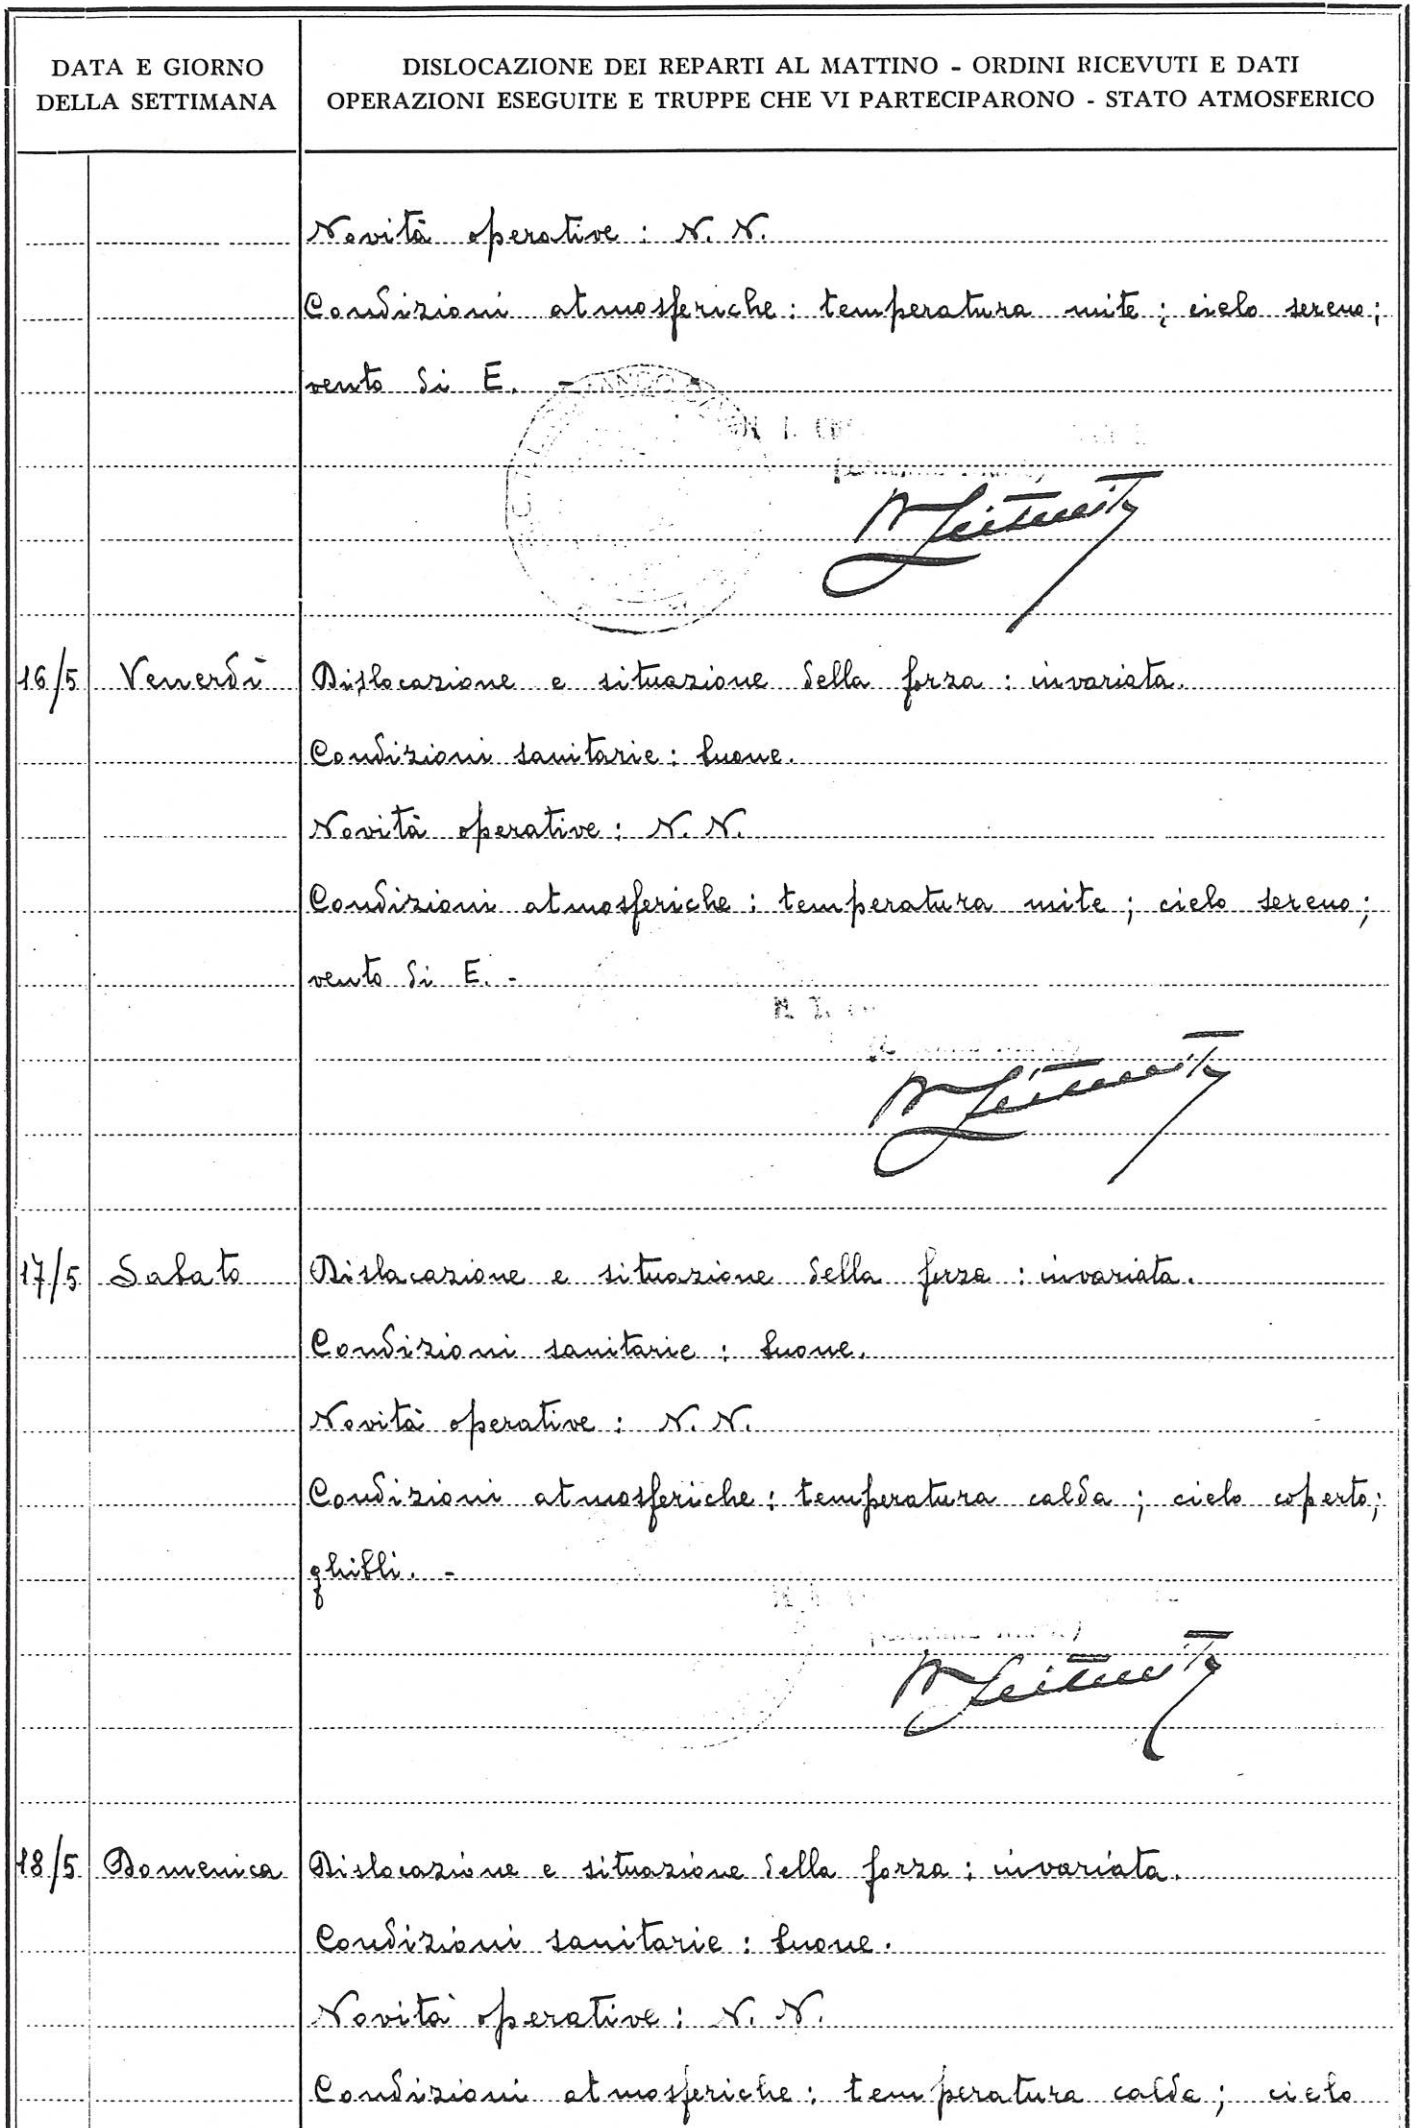 DATA E GIORNO
DELLA SETTIMANA
DISLOCAZIONE DEI REPARTI AL MATTINO - ORDINI RICEVUTI E DATI
OPERAZIONI ESEGUITE E TRUPPE CHE VI PARTECIPARONO - STATO ATMOSFERICO
Novità operative : N. N.
Condizioni atmosferiche : temperatura mite ; cielo sereno ;
vento di E. -
16/5 Venerdì Dislocazione e situazione della forza : invariata.
Condizioni sanitarie : buone.
Novità operative : N. N.
Condizioni atmosferiche : temperatura mite ; cielo sereno ;
vento di E. -
17/5 Sabato Dislacazione e situazione della forza : invariata.
Condizioni sanitarie : buone.
Novità operative : N. N.
Condizioni atmosferiche : temperatura calda ; cielo coperto ;
ghibli. -
18/5 Domenica Dislocazione e situazione della forza : invariata.
Condizioni sanitarie : buone.
Novità operative : N. N.
Condizioni atmosferiche : temperatura calda ; cielo